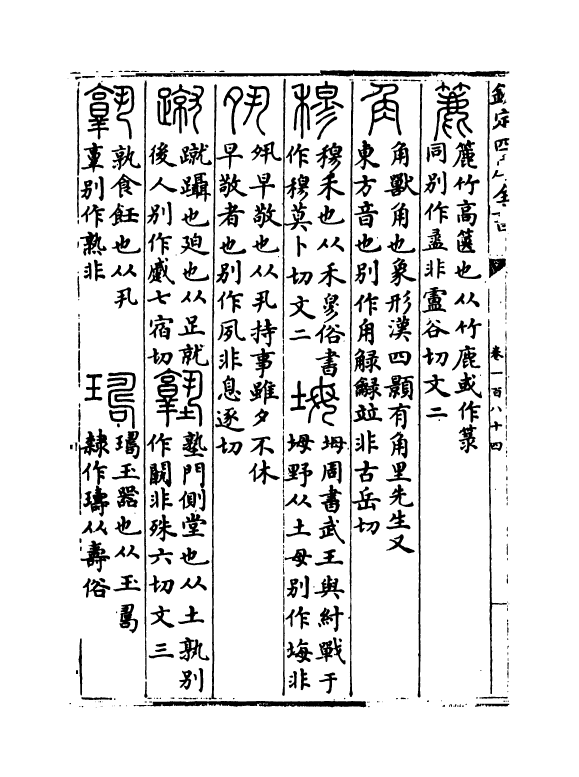 欽定四庫全書
卷一百八十四
簏 簏竹高篋也从竹鹿或作箓
同别作盝非盧谷切文二
角 角獸角也象形漢四顥有角里先生又
東方音也别作甪觮䚫竝非古岳切
穆 穆禾也从禾㣎俗書
作穆莫卜切文二
坶 坶周書武王與紂戰于
坶野从土母别作埆非
夙 夙早敬也从丮持事雖夕不休
早敬者也别作夙非息逐切
蹴 蹴躡也廹也从足就
後人别作蹙七宿切
塾 塾門側堂也从土孰别
作闕非殊六切文三
孰 孰食飪也从丮
𦎫别作熟非
㻿 㻿玉器也从玉𠷎
隸作璹从壽俗